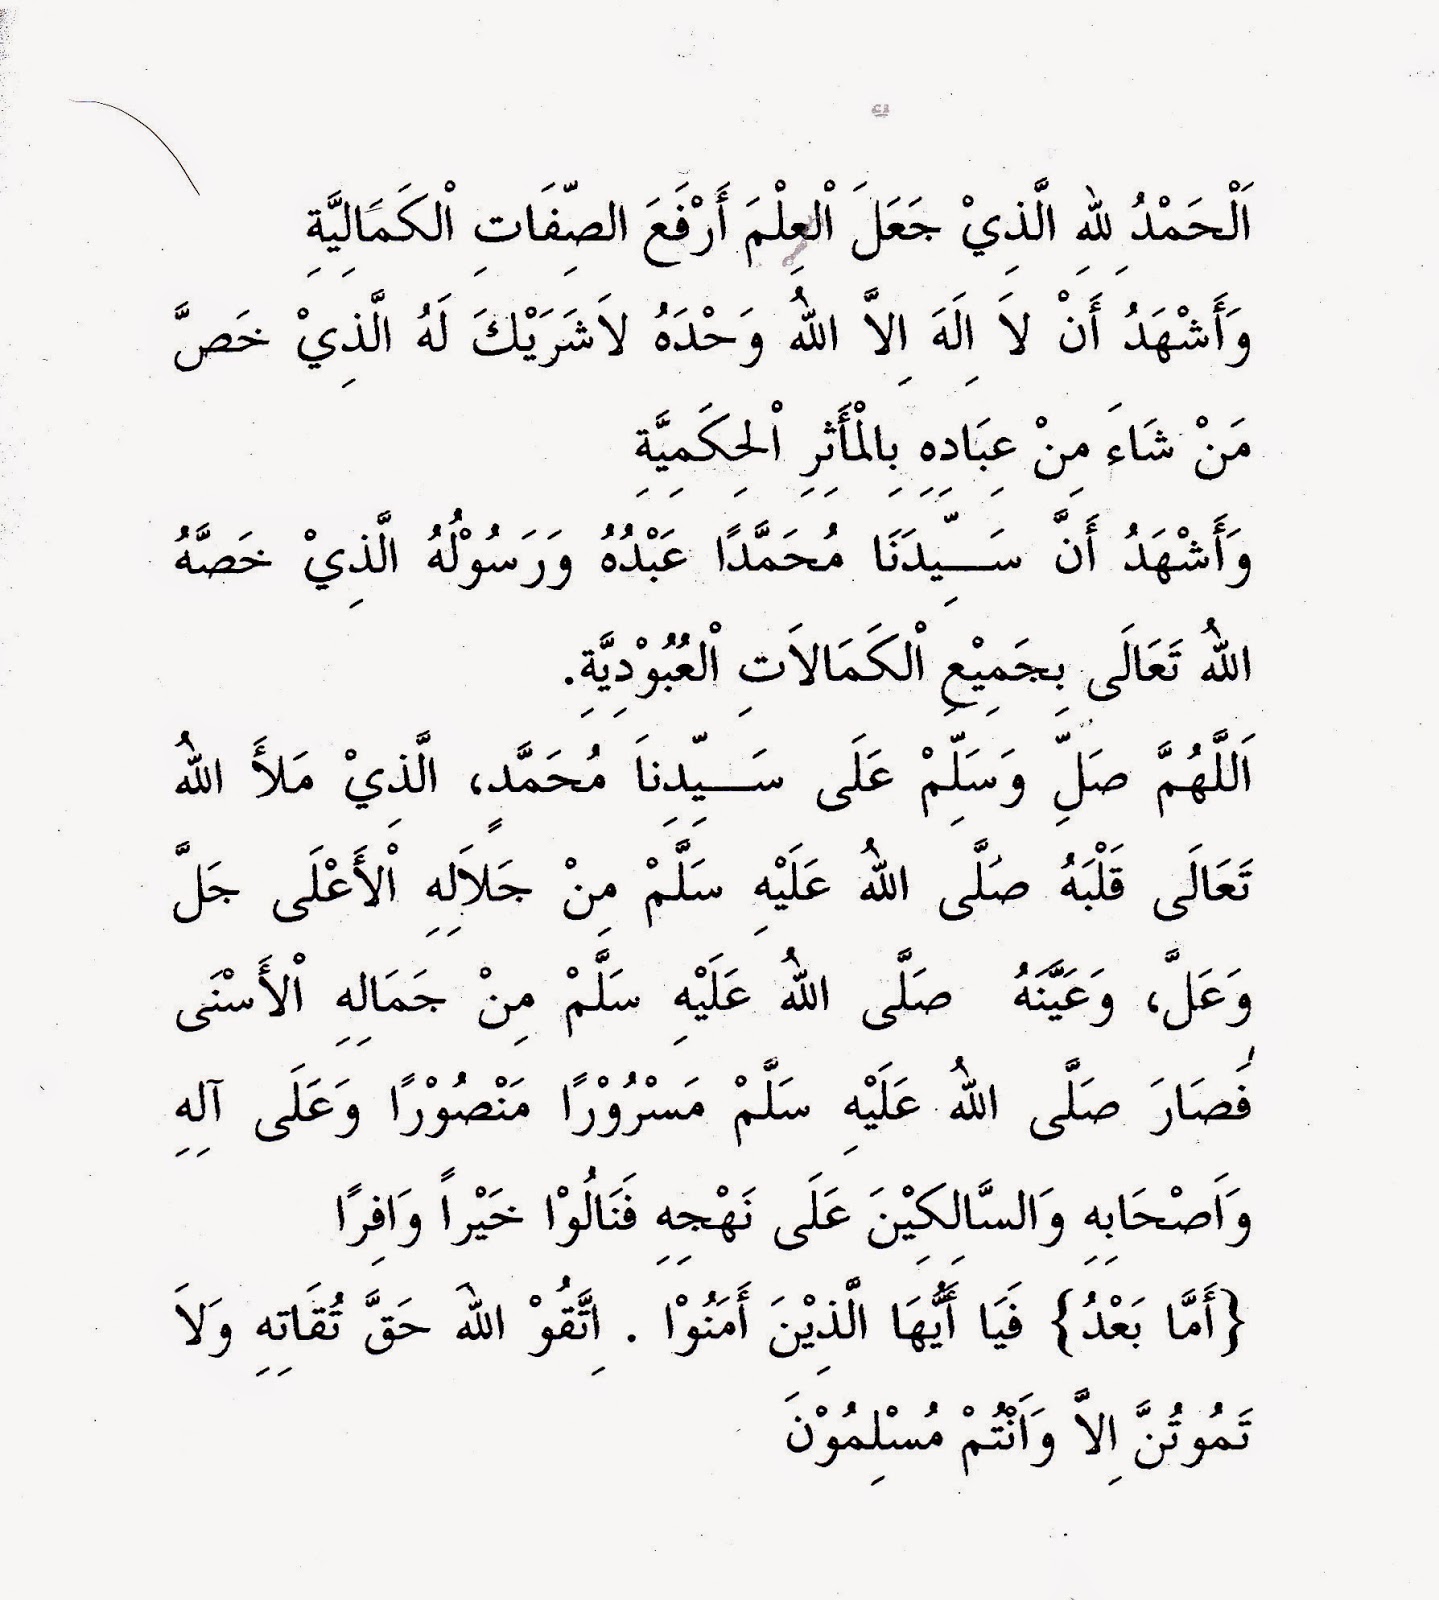 اَلْحَمْدُ لِلّٰهِ الَّذِيْ جَعَلَ اْلعِلْمَ أَرْفَعَ الصِّفَاتِ اْلكَمَالِيَّةِ
وَأَشْهَدُ أَنْ لاَ اِلَهَ اِلاَّ اللهُ وَحْدَهُ لاَشَرَيْكَ لَهُ الَّذِيْ خَصَّ
مَنْ شَاءَ مِنْ عِبَادِهِ بِالْمأَثِرِ اْلحِكَمِيَّةِ
وَأَشْهَدُ أَنَّ سَـــيِّدَنَا مُحَمَّدًا عَبْدُهُ وَرَسُوْلُهُ الَّذِيْ خَصَّهُ
اللهُ تَعَالَى بِجَمِيْعِ اْلكَمَالاَتِ اْلعُبُوْدِيَّةِ.
اَللَّهُمَّ صَلِّ وَسَلِّمْ عَلَى سَـــيِّدِنِاَ مُحَمَّدٍ، الَّذِيْ مَلأَ اللهُ
تَعَالَى قَلْبَهُ صَلَّى اللهُ عَلَيْهِ سَلَّمْ مِنْ جَلاَلِهِ اْلأَعْلَى جَلَّ
وَعَلَّ، وَعَيَّنَهُ صَلَّى اللهُ عَلَيْهِ سَلَّمْ مِنْ جَمَالِهِ اْلأَسْنَى
فَصَارَ صَلَّى اللهُ عَلَيْهِ سَلَّمْ مَسْرُوْرًا مَنْصُوْرًا وَعَلَى آلِهِ
وَاَصْحَابِهِ وَالسَّالِكِيْنَ عَلَى نَهْجِهِ فَنَالُوْا خَيْراً وَافِرًا
{أَمَّا بَعْدُ} فَيَا أَيُّهَا الَّذِيْنَ أَمَنُوْا . اِتَّقُوْ اللهَ حَقَّ تُقَاتِهِ وَلاَ
تَمُوتُنَّ اِلاَّ وَاَنْتُمْ مُسْلِمُوْنَ